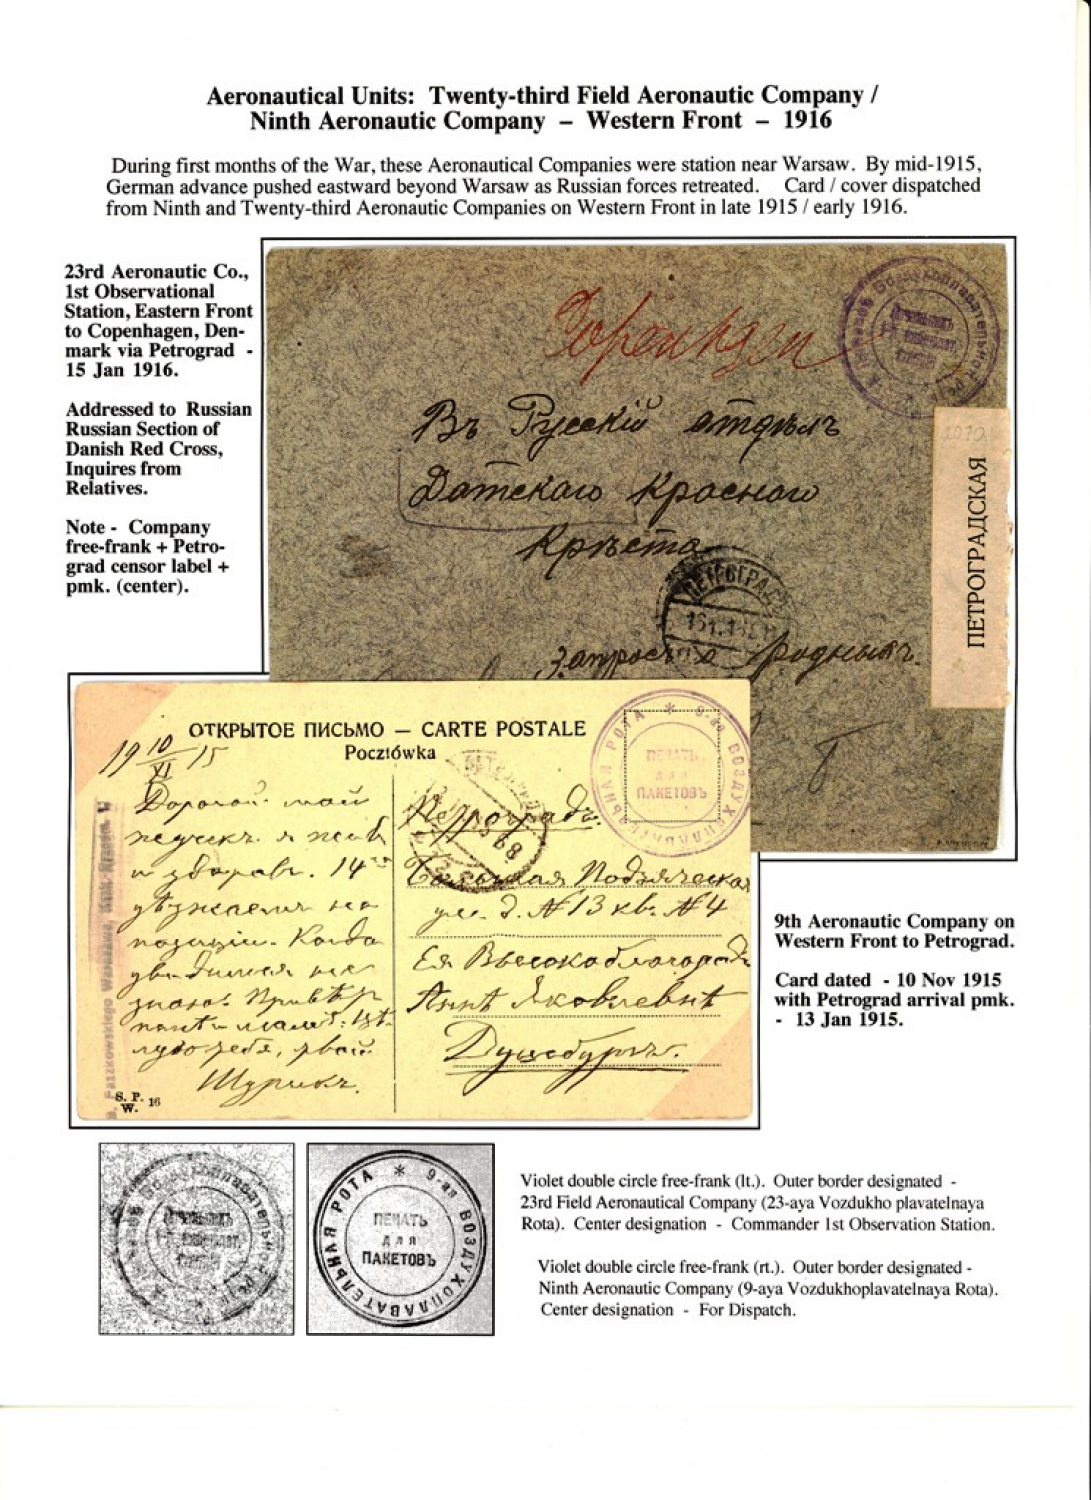 Aeronautical Units: Twenty-third Field Aeronautic Company /
Ninth Aeronautic Company – Western Front – 1916
During first months of the War, these Aeronautical Companies were station near Warsaw. By mid-1915,
German advance pushed eastward beyond Warsaw as Russian forces retreated. Card / cover dispatched
from Ninth and Twenty-third Aeronautic Companies on Western Front in late 1915 / early 1916.
23rd Aeronautic Co.,
1st Observational
Station, Eastern Front
to Copenhagen, Den-
mark via Petrograd -
15 Jan 1916.
Addressed to Russian
Russian Section of
Danish Red Cross,
Inquires from
Relatives.
Note - Company
free-frank + Petro-
grad censor label +
pmk. (center).
Въ Русскій отдѣлъ
Датскаго Краснаго
Креста
ПЕТРОГРАДЪ
запросъ о родныхъ.
ПЕТРОГРАДСКАЯ
ОТКРЫТОЕ ПИСЬМО — CARTE POSTALE
Pocztówka
19 10/XI 15
Дорогой мой
и здоровъ. 14
позиціи. Когда
знаю. Привѣт
Шурикъ.
S. P. 16
W.
9-ая ВОЗДУХОПЛАВАТЕЛЬНАЯ РОТА *
ПЕЧАТЬ
для
ПАКЕТОВЪ
Петроградъ.
Большая Подъяческая
ул. д. № 13 кв. № 4
Ея Высокоблагород
Аннѣ Яковлевнѣ
9th Aeronautic Company on
Western Front to Petrograd.
Card dated - 10 Nov 1915
with Petrograd arrival pmk.
- 13 Jan 1915.
9-ая ВОЗДУХОПЛАВАТЕЛЬНАЯ РОТА *
ПЕЧАТЬ
для
ПАКЕТОВЪ
Violet double circle free-frank (lt.). Outer border designated -
23rd Field Aeronautical Company (23-aya Vozdukho plavatelnaya
Rota). Center designation - Commander 1st Observation Station.
Violet double circle free-frank (rt.). Outer border designated -
Ninth Aeronautic Company (9-aya Vozdukhoplavatelnaya Rota).
Center designation - For Dispatch.